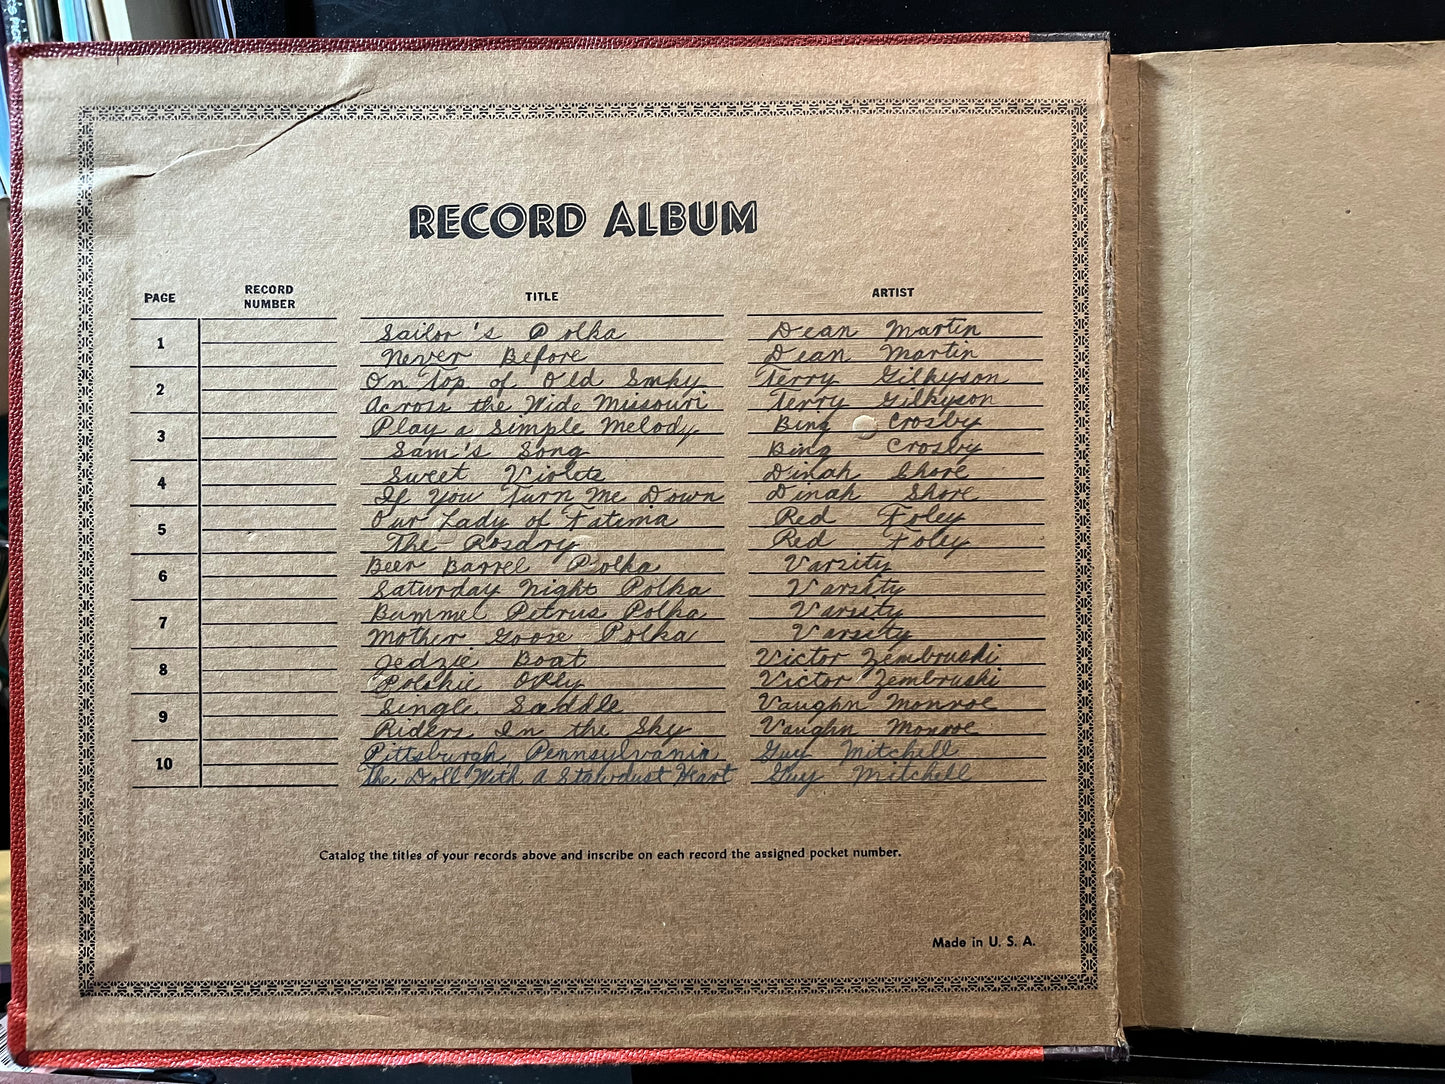 RECORD ALBUM
PAGE RECORD NUMBER TITLE ARTIST
1 Sailor's Polka Dean Martin
Never Before Dean Martin
2 On Top of Old Smky Terry Gilkyson
Across the Wide Missouri Terry Gilkyson
3 Play a Simple Melody Bing Crosby
Sam's Song Bing Crosby
4 Sweet Violets Dinah Shore
If You Turn Me Down Dinah Shore
5 Our Lady of Fatima Red Foley
The Rosary Red Foley
6 Beer Barrel Polka Varsity
Saturday Night Polka Varsity
7 Bummel Petrus Polka Varsity
Mother Goose Polka Varsity
8 Jedzie Boat Victor Zembruski
Polskie Victor Zembruski
9 Single Saddle Vaughn Monroe
Riders In the Sky Vaughn Monroe
10 Pittsburgh, Pennsylvania Guy Mitchell
The Doll With A Stawdust Heart Guy Mitchell
Catalog the titles of your records above and inscribe on each record the assigned pocket number.
Made in U. S. A.